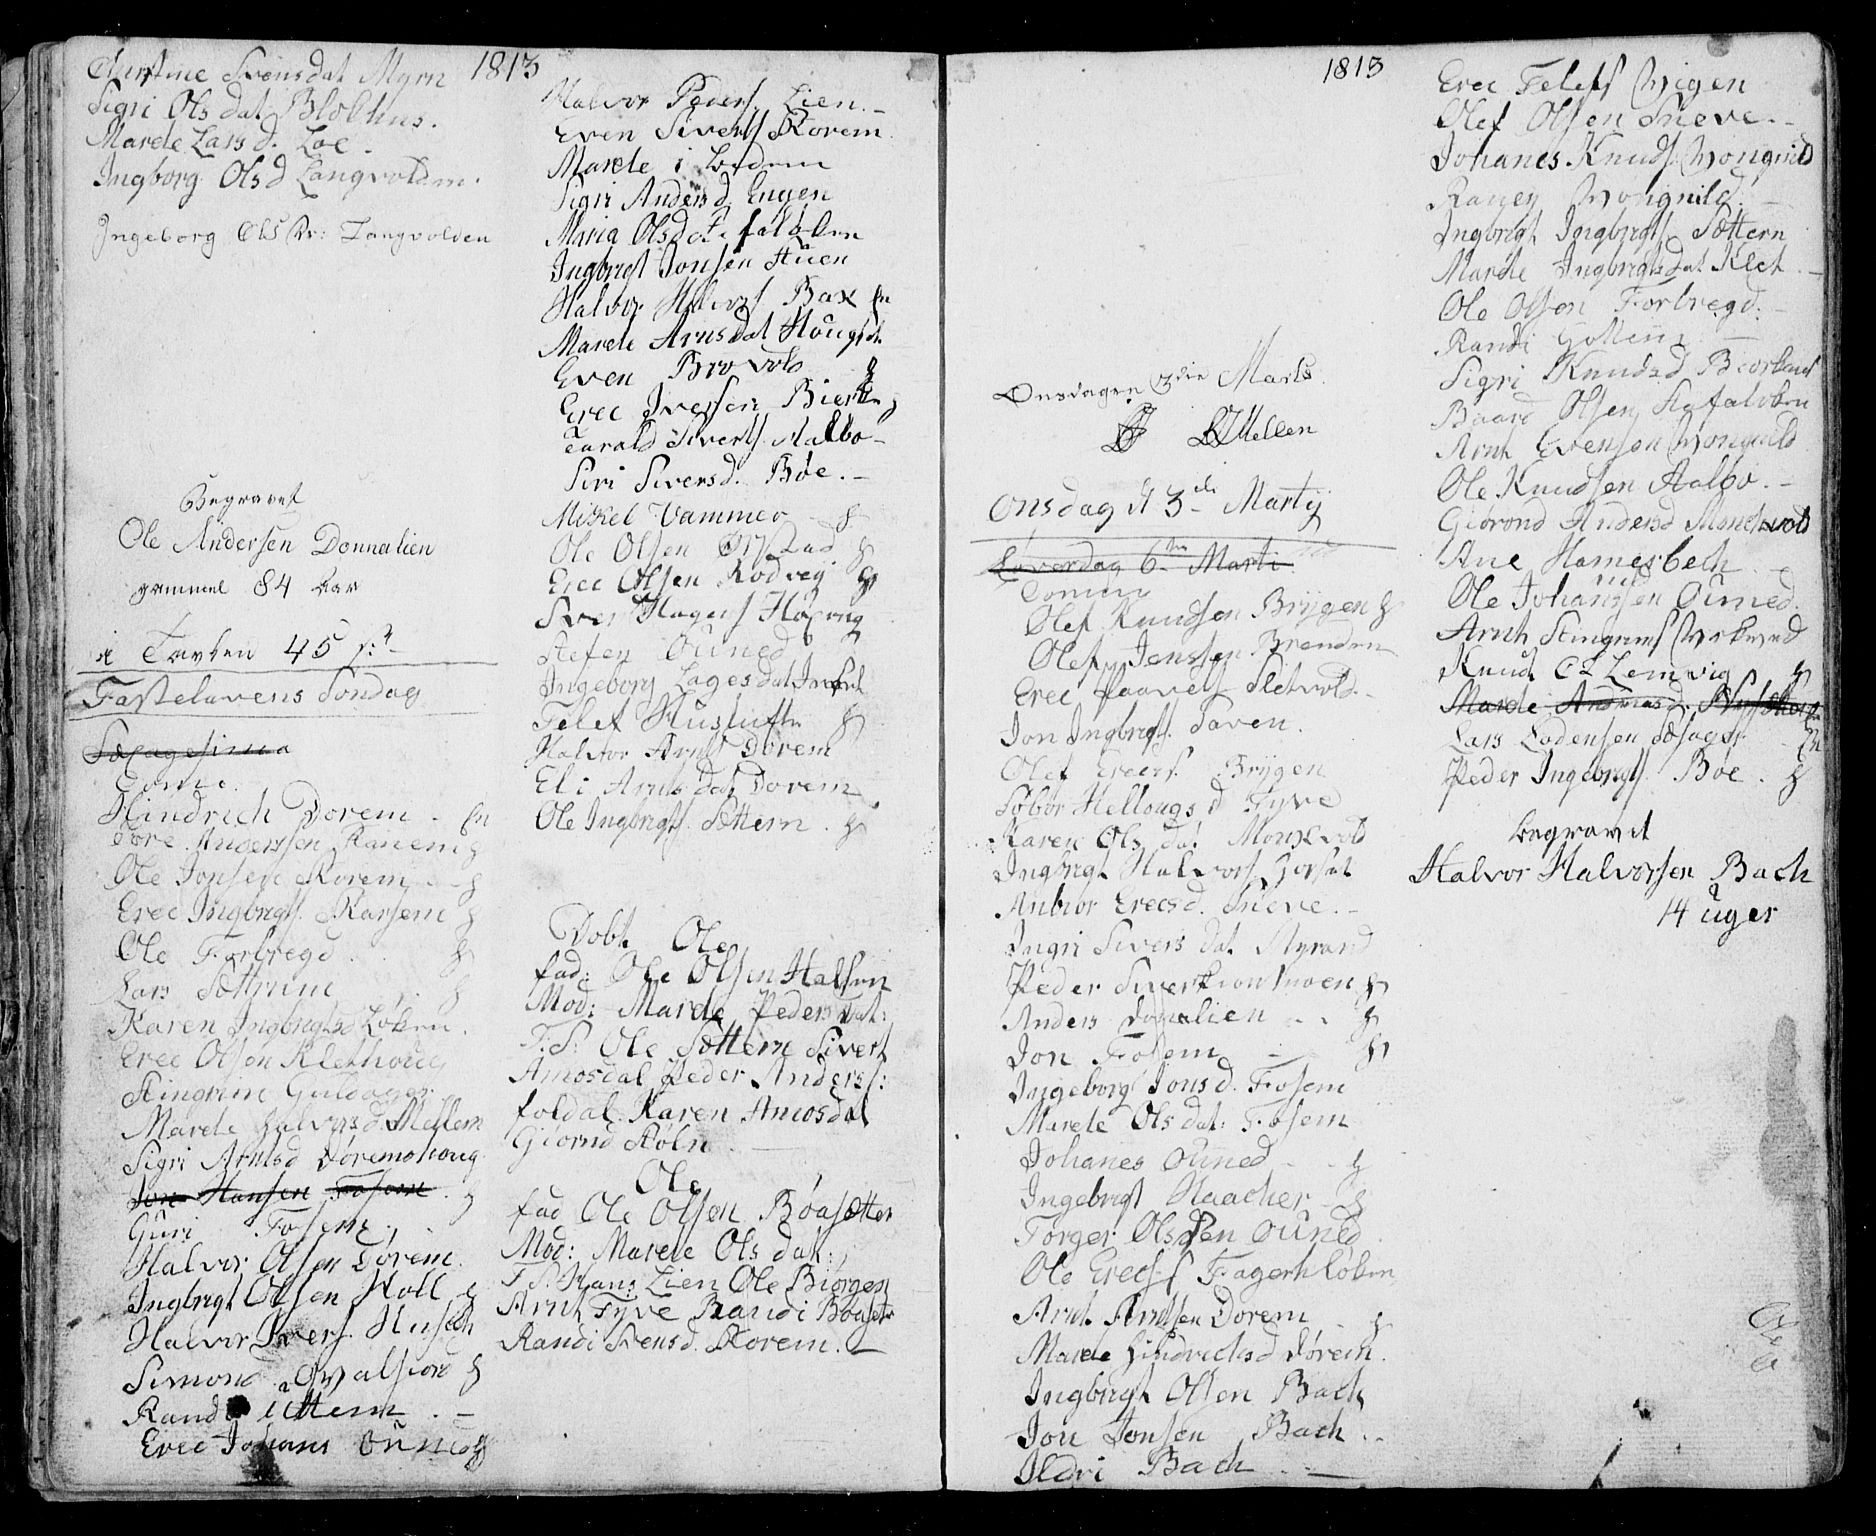 1813
Christine Svensdat Myrn
Sigri Olsdat Blokhus.
Marete Larsd. Loe.
Ingborg Olsd Langvolden.
Ingeborg Ols Dr: Langvolden
Begravet
Ole Andersen Donnalien
gammel 84 Aar
i Tavlen 45 s:
Fastelavens Søndag
Sexagesima
Comm.
Hindrich Dorem
Tore Anderssen Ranem
Ole Jonsen Korem
Erec Ingbrigts. Karsem
Ole Forbregd
Lars Sættrum
Karen Ingbrigtsd Løken.
Erec Olsen Klethoug
Stingrim Guldager
Marete Halvorsd. Mellem
Sigri Arntsd Doremshoug
Jon Hansen Fosem
Guri Fosem
Halvor Olsen Dorem.
Ingbrigt Olsen Holl
Halvor Ivers. Huseth
Simon Hvalsiord
Randi Uttem
Erec Johans Ouned
Halvor Peders. Lien.
Even Siverts Korem.
Marete i Lodem
Sigri Andersd Engen
Maria Olsdat falken
Ingbrigt Jonsen Huen
Halvor Halvors Bax
Marete Arnsdat Houg
Even Brovold
Erec Iversen Bierke
Tarald Siverts. Aalbo
Siri Siversd. Boe.
Mikel Vammer
Ole Olsen Øystad
Erec Olsen Rodveg
Sver Hagens Høeveg
Stefen Ouned
Ingeborg Lagesdat
Telef Husluft
Halvor Arnts Dorem
Eli Arntsdat Dorem
Ole Ingbrigts. Sættern.
Dobt Ole
fad: Ole Olsen Halsen
Mod: Marete Pedersdat:
F.S: Ole Sættern Sivert
Amosdal Peder Anders:
foldal Karen Amosdal
Giørnd Køln
Ole
fad Ole Olsen Boasætter
Mod: Marete Olsdat:
F.S. Hans Lien Ole Biørgen
Arnt Fyve Randi Boasetr
Randi Svensd. Korem.
1813
Onsdagen 3die Marts.
Mellen
Onsdag d 3de Martij
Løverdag 6te Marti
Comm
Olef Knudsen Brygen
Olef Jenssen Brenden
Erec Paavels Sletvold
Jon Ingbrigts. Saven.
Olef Erecs. Brygen
Sobor Hellougsd Fyve
Karen Olsdat Monxvold
Ingbrigt Halvors Horsat
Anbior Erecsd. Sneve.
Ingri Siversdat Myrand
Peder Sivertson Moen
Anders Donalien
Jon Fosem
Ingeborg Jonsd. Fosem
Marete Olsdat: Fosem
Johanes Ouned
Ingebrigt Haacher
Torger Olsden Ouned
Ole Erecss Fagerhløken
Arnt Arntsen Dorem
Marete Hindrecksd Dørem.
Ingbrigt Olsen Bach
Jon Jonsen Bach
Ildri Bach
Erec Telefs Wigen
Olef Olsen Sneve.
Johanes Knuds. Wongnild
Rangen Wongnild.
Ingbrigt Ingbrigts. Sættern
Marete Ingbrigtsdat Klet
Ole Olsen Forbregd.
Randi Gollein
Sigri Knudsd Biorkaas
Baard Olsen Aafaloken
Arnt Evensen Wongnild
Ole Knudsen Aalbo.
Giørond Andersd Monchvold
Ane Hamesbech
Ole Johansen Ouned.
Arnt Stingrims
Knud Lemvig
Marete Andreasd.
Lars Lodensen
Peder Ingebrigts. Boe.
Begravet
Halvor Halvorsen Bach
14 uger